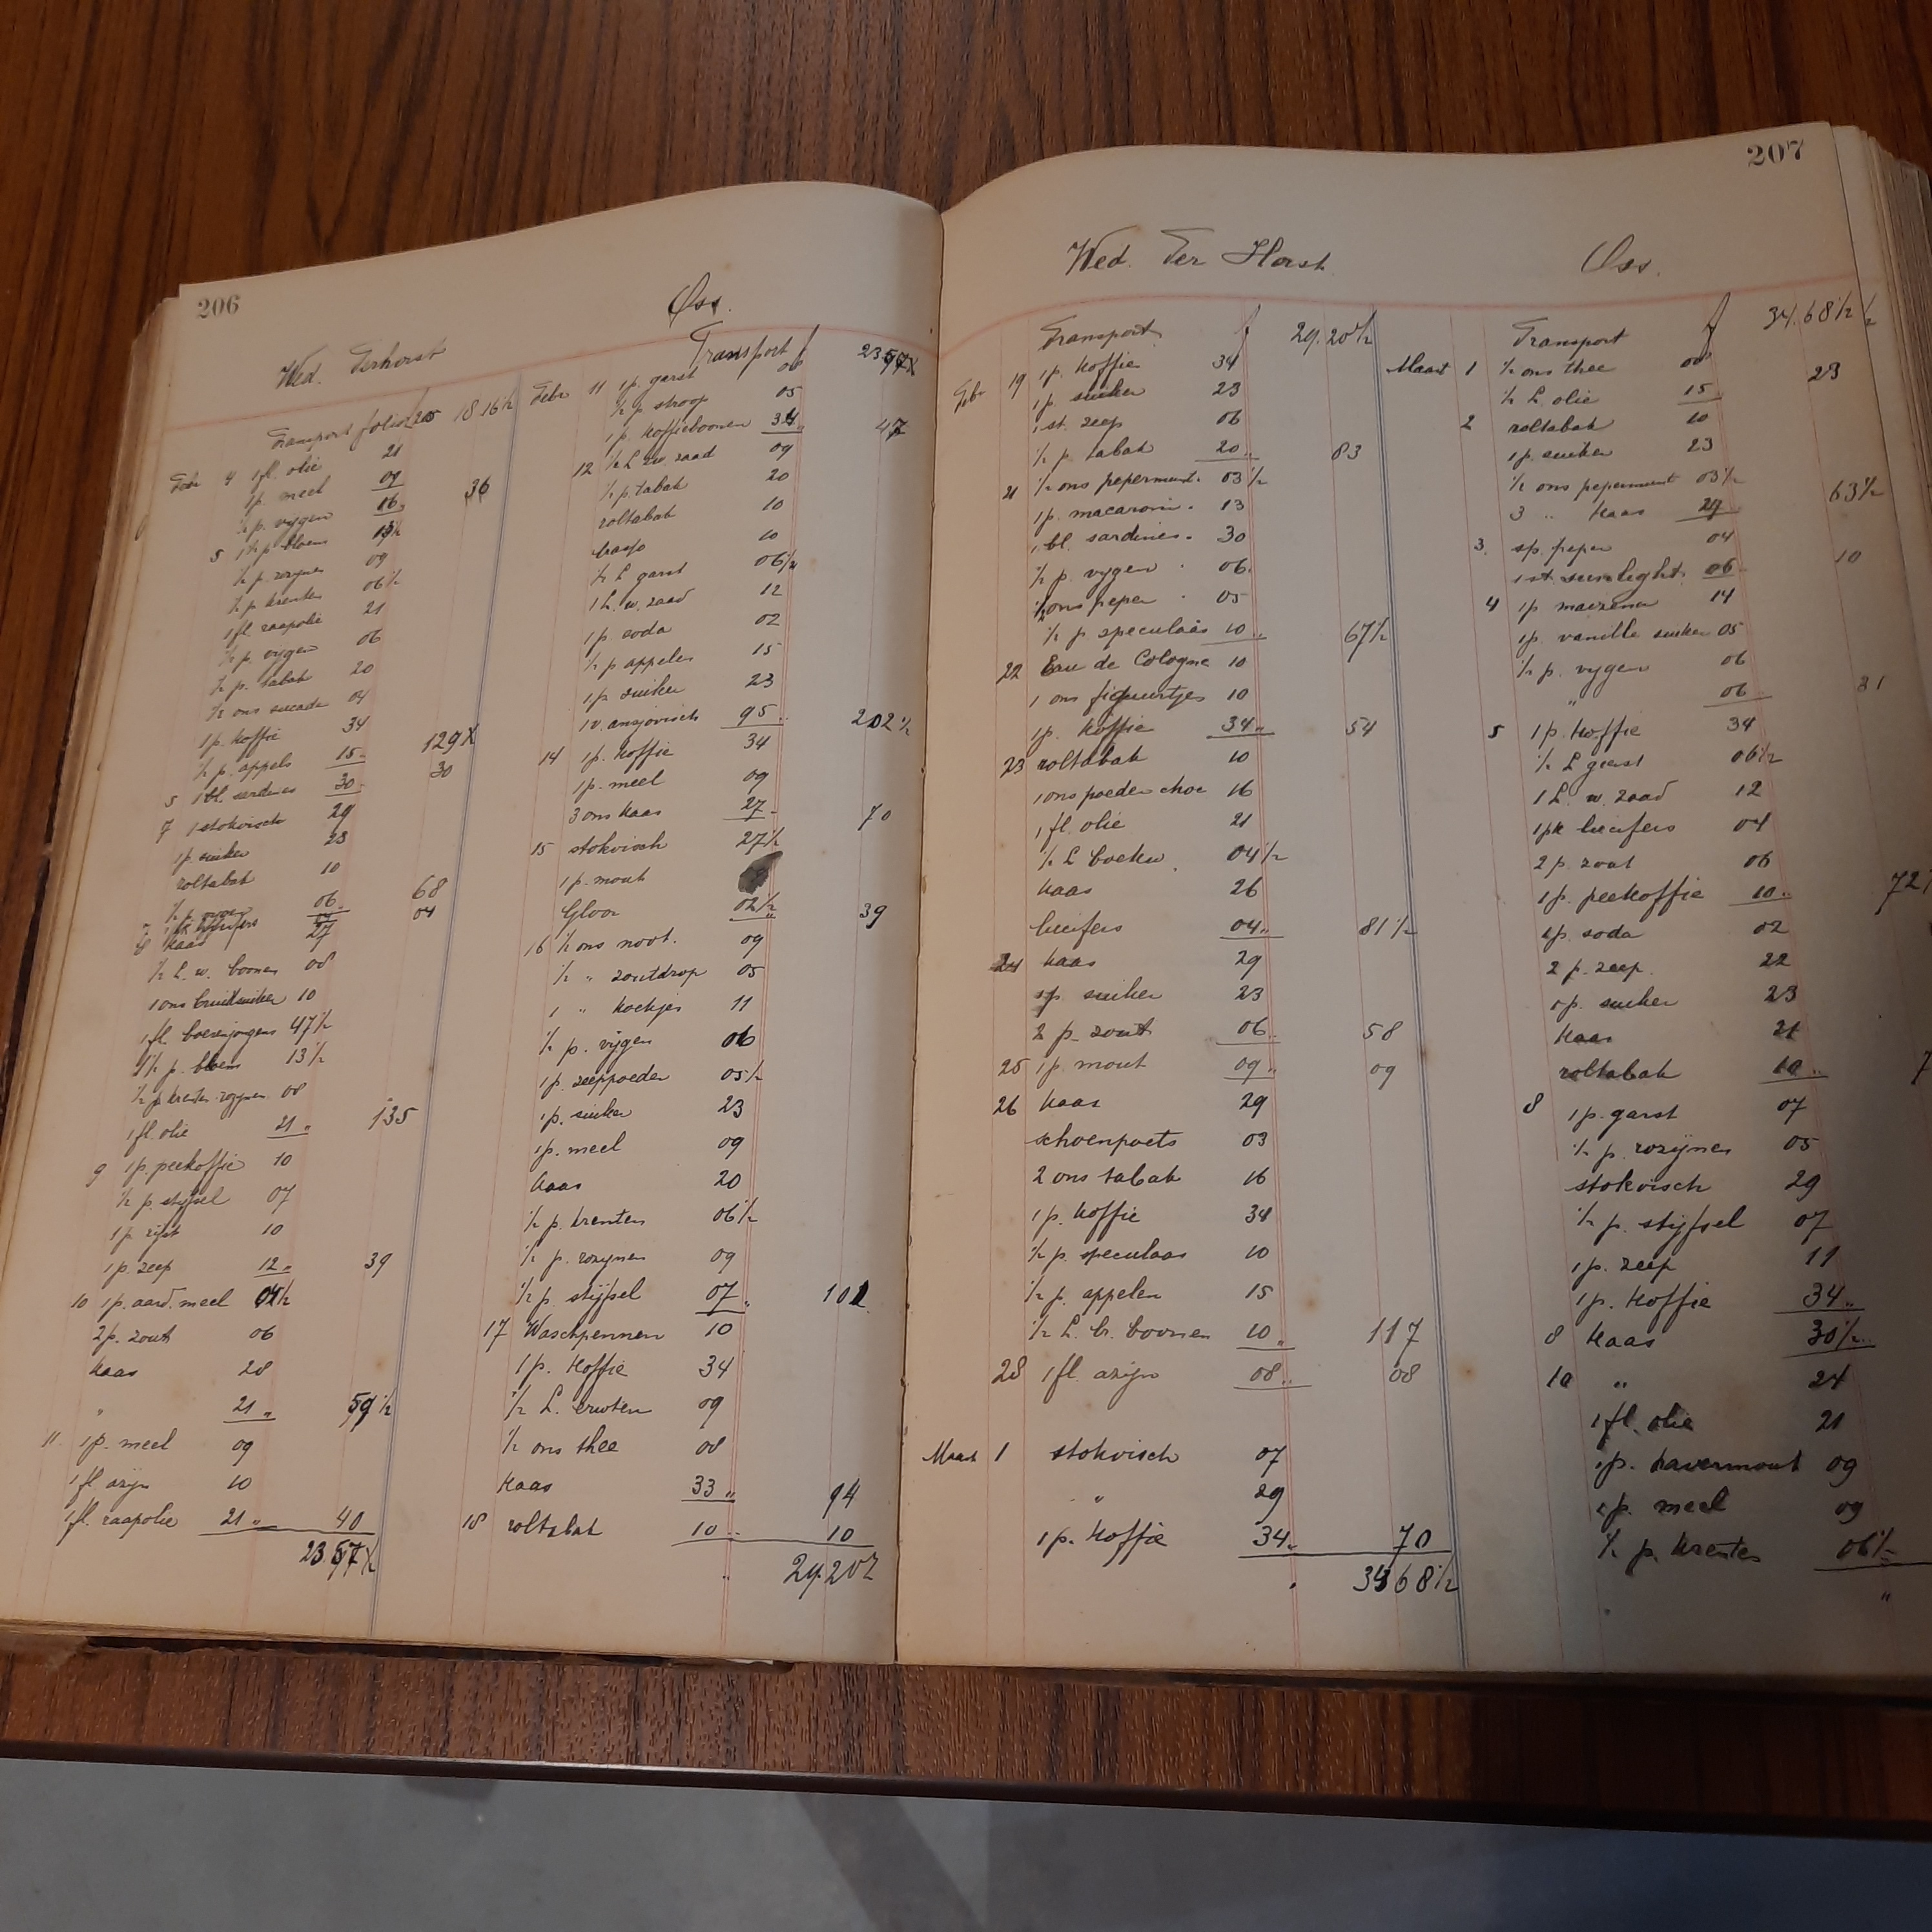 206
Oss.
Wed. Terhorst
Transport folio 205 18 16½
Febr 4 1 fl. olie 21
1 p. meel 09
½ p. vijgen 16 36
5 1½ p. bloem 13½
½ p. rozijnen 09
½ p. krenten 06½
1 fl. raapolie 21
½ p. vijgen 06
½ p. tabak 20
½ ons sucade 04
1 p. koffie 34
½ p. appels 15 129
5 1 bl. serdines 30 30
7 1 stokvisch 29
1 p. suiker 23
roltabak 10
½ p. vijgen 06 68
04
8 kaas 27
½ L. w. boonen 08
1 ons bruidsuiker 10
1 fl. boerenjongens 47½
1½ p. bloem 13½
½ p. krenten rozijnen 08
1 fl. olie 21 " 135
9 1 p. peekoffie 10
½ p. stijfsel 07
1 p. rijst 10
1 p. zeep 12 " 39
10 1 p. aard. meel 04½
2 p. zout 06
kaas 28
" 21 " 59½
11 1 p. meel 09
1 fl azijn 10
1 fl. raapolie 21 " 40
23.57
Transport f 2357
Febr 11 1 p. garst 08
½ p stroop 05
1 p. koffieboonen 34 47
12 ½ L w. zaad 09
½ p. tabak 20
roltabak 10
10
½ L garst 06½
1 L. w. zaad 12
1 p soda 02
½ p appelen 15
1 p suiker 23
1 v. ansjovisch 95 202½
14 1 p. koffie 34
1 p. meel 09
3 ons kaas 27 70
15 stokvisch 27½
1 p. mout
Gloor 02½ 39
16 ½ ons noot. 09
½ " zoutdrop 05
1 " koekjes 11
½ p. vijgen 06
1 p. zeeppoeder 05½
1 p. suiker 23
1 p. meel 09
kaas 20
½ p. krenten 06½
½ p. rozijnen 09
½ p. stijfsel 07 " 102
17 Waschpennen 10
1 p. koffie 34
½ L. erwten 09
½ ons thee 08
kaas 33 " 94
18 roltabak 10 10
29.20½
207
Wed. Ter Horst. Oss.
Transport f 29.20½
Febr 19 1 p. koffie 34
1 p. suiker 23
1 st. zeep 06
½ p. tabak 20 83
21 ½ ons pepermunt. 03½
1 p. macaroni. 13
1 bl. sardines. 30
½ p. vijgen 06
½ ons peper 05
½ p speculaas 10 67½
22 Eau de Cologne 10
1 ons figuurtjes 10
1 p. koffie 34 " 54
23 roltabak 10
1 ons poeder choc 16
1 fl. olie 21
½ L boekw. 04½
kaas 26
lucifers 04 " 81½
24 kaas 29
1 p. suiker 23
2 p. zout 06 58
25 1 p. mout 09 " 09
26 kaas 29
schoenpoets 03
2 ons tabak 16
1 p. koffie 34
½ p. speculaas 10
½ p. appelen 15
½ L. br. boonen 10 " 117
28 1 fl. azijn 08 08
Maart 1 stokvisch 07
" 29
1 p. koffie 34 70
34 68½
Transport f 34.68½
Maart 1 ½ ons thee 08
½ L. olie 15 23
2 roltabak 10
1 p. suiker 23
½ ons pepermunt 03½
3 " kaas 27 63½
3. sp. peper 04
1 st. sunlight 06 10
4 1 p maizena 14
1 p. vanille suiker 05
½ p. vijgen 06
" 06 31
5 1 p. koffie 34
½ L garst 06½
1 L. w. zaad 12
1 pk lucifers 04
2 p. zout 06
1 p. peekoffie 10
1 p. soda 02
2 p. zeep. 22
1 p. suiker 23
kaas 21
roltabak 10
8 1 p. garst 07
½ p. rozijnen 05
stokvisch 29
½ p. stijfsel 07
1 p. zeep 11
1 p. koffie 34 "
8 kaas 30½
10 " 24
1 fl. olie 21
1 p. havermout 09
1 p. meel 09
½ p. krenten 06½
"